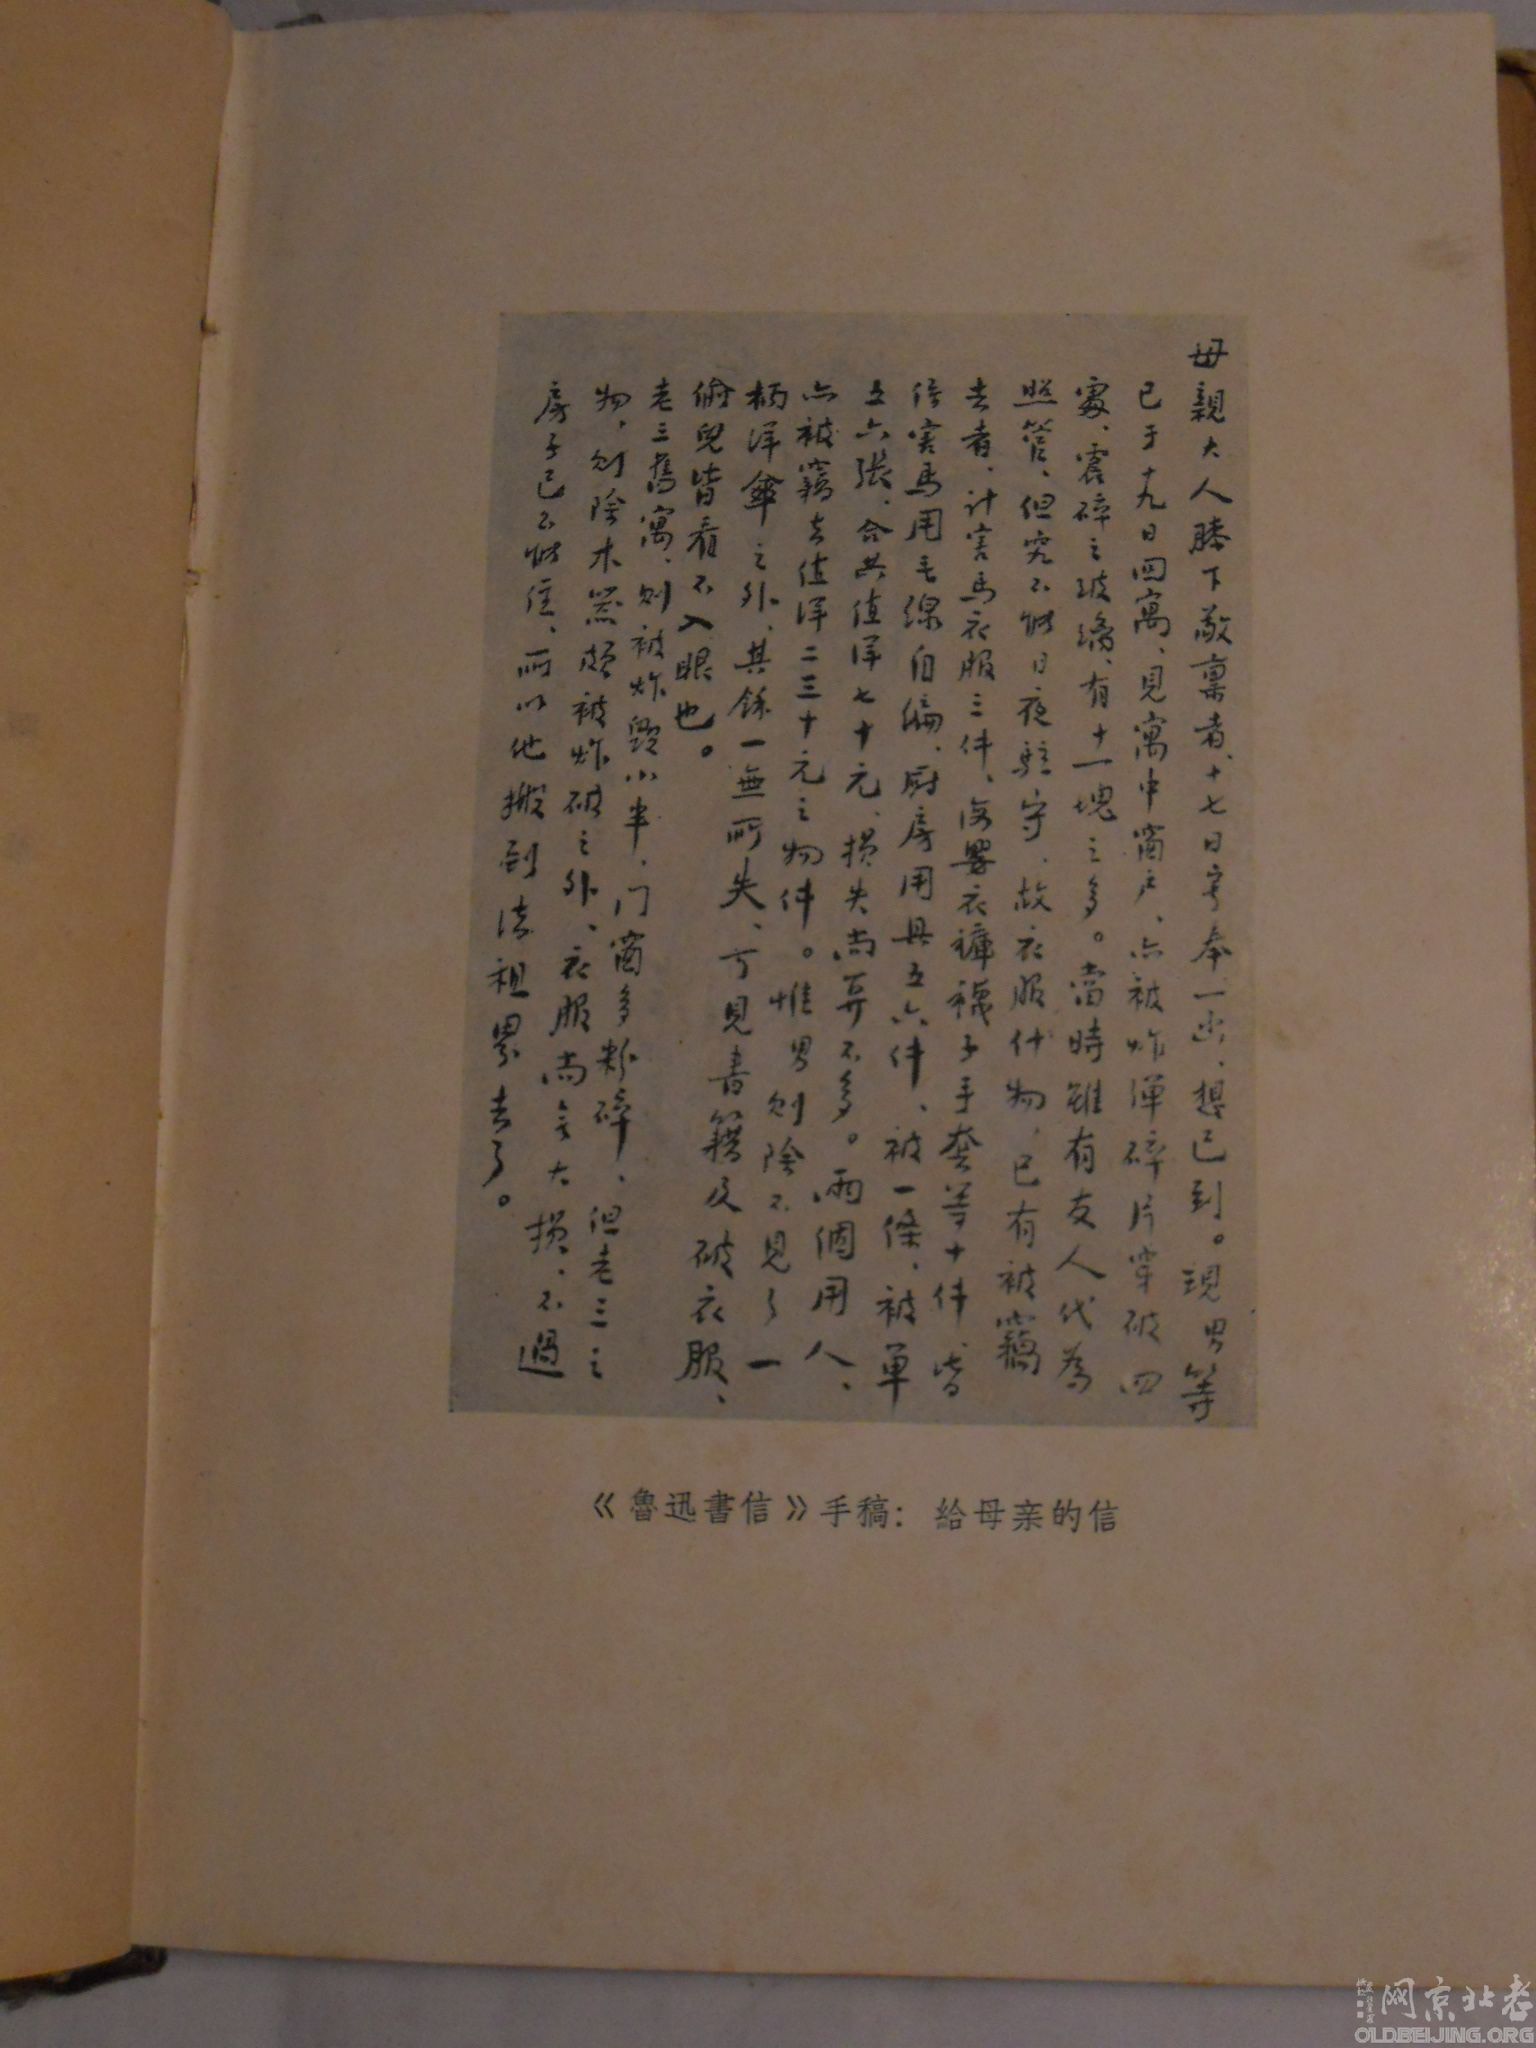 母親大人膝下敬稟者、十七日寄奉一函、想已到。現男等
已于十九日回寓、見寓中窗户、亦被炸彈碎片穿破四
處、震碎之玻璃、有十一塊之多。當時雖有友人代為
照管、但究不能日夜駐守、故衣服什物、已有被竊
去者、計害馬衣服三件、海嬰衣褲襪子手套等十件、皆
係害馬用毛線自編、厨房用具五六件、被一條、被單
五六張、合共值洋七十元、損失尚算不多。兩個用人、
亦被竊去值洋二三十元之物件。惟男則除不見了一
柄洋傘之外、其餘一無所失、可見書籍及破衣服、
偷兒皆看不入眼也。
老三舊寓、則被炸毀小半、门窗多粉碎、但老三之
物、則除木器頗被炸破之外、衣服尚無大損、不過
房子已不能住、所以他搬到法租界去了。
《魯迅書信》手稿：給母亲的信
老北京网
OLDBEIJING.ORG